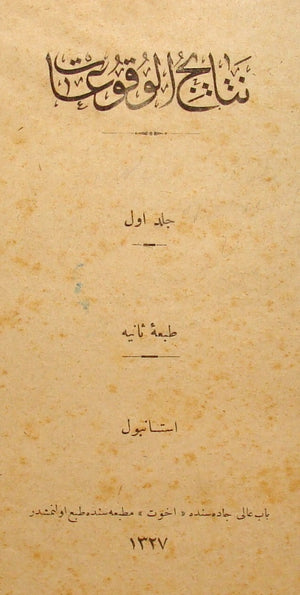 نتايج الوقوعات
جلد اول
طبعهٔ ثانيه
استانبول
باب عالی جاده‌سنده « اخوت » مطبعه‌سنده طبع اولنمشدر
١٣٢٧